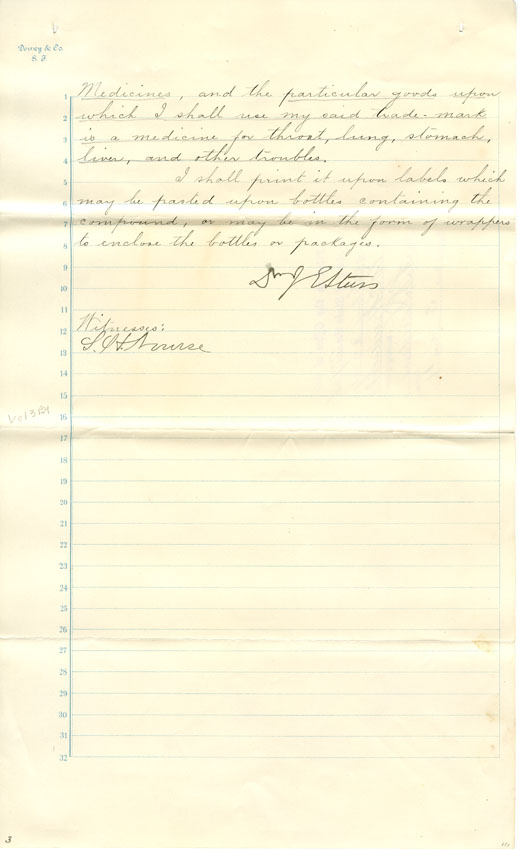 Dewey & Co.
S. F.
1 Medicines, and the particular goods upon
2 which I shall use my said trade-mark
3 is a medicine for throat, lung, stomach,
4 liver, and other troubles.
5 I shall print it upon labels which
6 may be pasted upon bottles containing the
7 compound, or may be in the form of wrappers
8 to enclose the bottles or packages.
9
10
11
12 Witnesses:
13 Nourse
14
15
16
17
18
19
20
21
22
23
24
25
26
27
28
29
30
31
32
3